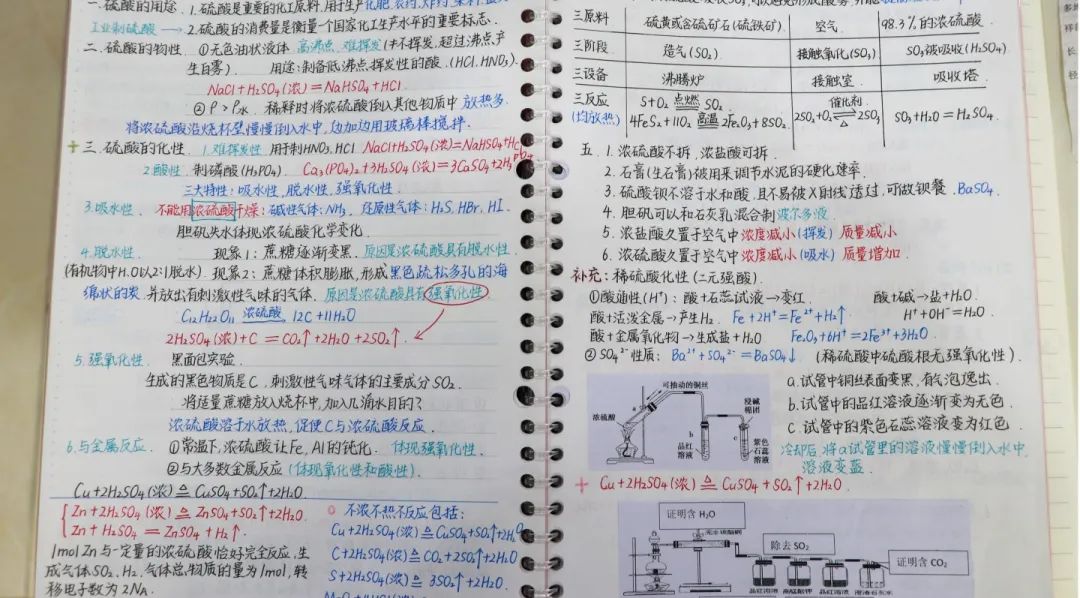 一.硫酸的用途. 1.硫酸是重要的化工原料,用于生产化肥,农药,炸药,染料
工业制硫酸 → 2.硫酸的消费量是衡量一个国家化工生产水平的重要标志.
二.硫酸的物性 ①无色油状液体 高沸点.难挥发(其不挥发,超过沸点产
生白雾). 用途:制备低沸点挥发性的酸.(HCl.HNO₃).
NaCl+H₂SO₄(浓)=NaHSO₄+HCl
②ρ>ρ水. 稀释时将浓硫酸倒入其他物质中 放热多.
将浓硫酸沿烧杯壁慢慢倒入水中,边加边用玻璃棒搅拌.
三.硫酸的化性 1.难挥发性 用于制HNO₃.HCl NaCl+H₂SO₄(浓)=NaHSO₄+HC
2.酸性. 制磷酸(H₃PO₄). Ca₃(PO₄)₂+3H₂SO₄(浓)=3CaSO₄+2H₃PO₄
三大特性:吸水性,脱水性,强氧化性.
3.吸水性. 不能用浓硫酸干燥:碱性气体:NH₃. 还原性气体:H₂S.HBr.HI.
胆矾失水体现浓硫酸化学变化.
4.脱水性 现象1:蔗糖逐渐变黑.原因是浓硫酸具有脱水性
(有机物中H.O以2:1脱水).现象2:蔗糖体积膨胀,形成黑色疏松多孔的海
绵状的炭.并放出有刺激性气味的气体.原因是浓硫酸具有强氧化性
C₁₂H₂₂O₁₁ 浓硫酸 12C+11H₂O
2H₂SO₄(浓)+C=CO₂↑+2H₂O+2SO₂↑
5.强氧化性 黑面包实验.
生成的黑色物质是C.刺激性气味气体的主要成分SO₂.
将适量蔗糖放入烧杯中,加入几滴水目的?
浓硫酸溶于水放热,促使C与浓硫酸反应.
6.与金属反应. ①常温下,浓硫酸让Fe,Al的钝化. 体现强氧化性.
②与大多数金属反应(体现氧化性和酸性).
Cu+2H₂SO₄(浓)≜CuSO₄+SO₂↑+2H₂O.
Zn+2H₂SO₄(浓)≜ZnSO₄+SO₂↑+2H₂O.
Zn+H₂SO₄=ZnSO₄+H₂↑.
1molZn与一定量的浓硫酸恰好完全反应.生
成气体SO₂、H₂.气体总物质的量为1mol,转
移电子数为2NA.
不浓不热不反应包括:
Cu+2H₂SO₄(浓)≜CuSO₄+SO₂↑+2H₂O
C+2H₂SO₄(浓)≜CO₂+2SO₂↑+2H₂O
S+2H₂SO₄(浓)≜3SO₂↑+2H₂O.
三原料 硫黄或含硫矿石(硫铁矿) 空气. 98.3%的浓硫酸.
三阶段 造气(SO₂) 接触氧化(SO₃) SO₃被吸收(H₂SO₄).
三设备 沸腾炉 接触室. 吸收塔.
三反应 S+O₂ 点燃 SO₂ 催化剂
(均放热) 4FeS₂+11O₂ 高温 2Fe₂O₃+8SO₂. 2SO₂+O₂ ⇌ 2SO₃ △ SO₃+H₂O=H₂SO₄.
五. 1.浓硫酸不拆,浓盐酸可拆.
2.石膏(生石膏)被用来调节水泥的硬化速率.
3.硫酸钡不溶于水和酸,且不易被X射线透过.可做钡餐.BaSO₄.
4.胆矾可以和石灰乳混合制波尔多液.
5.浓盐酸久置于空气中浓度减小(挥发) 质量减小
6.浓硫酸久置于空气中浓度减小(吸水) 质量增加.
补充:稀硫酸化性(二元强酸).
①酸通性(H⁺):酸+石蕊试液→变红. 酸+碱→盐+H₂O.
酸+活泼金属→产生H₂. Fe+2H⁺=Fe²⁺+H₂↑. H⁺+OH⁻=H₂O.
酸+金属氧化物→生成盐+H₂O Fe₂O₃+6H⁺=2Fe³⁺+3H₂O.
②SO₄²⁻性质:Ba²⁺+SO₄²⁻=BaSO₄↓ (稀硫酸中硫酸根无强氧化性).
可抽动的铜丝
浓硫酸
a
浸碱
棉团
b
c
品红
溶液
紫色
石蕊
溶液
a.试管中铜丝表面变黑,有气泡逸出.
b.试管中的品红溶液逐渐变为无色.
c.试管中的紫色石蕊溶液变为红色.
冷却后,将a试管里的溶液慢慢倒入水中,
溶液变蓝.
Cu+2H₂SO₄(浓)≜CuSO₄+SO₂↑+2H₂O.
证明含H₂O
无水硫酸铜
除去SO₂
证明含CO₂
品红溶液 高锰酸钾 品红溶液 澄清石灰水